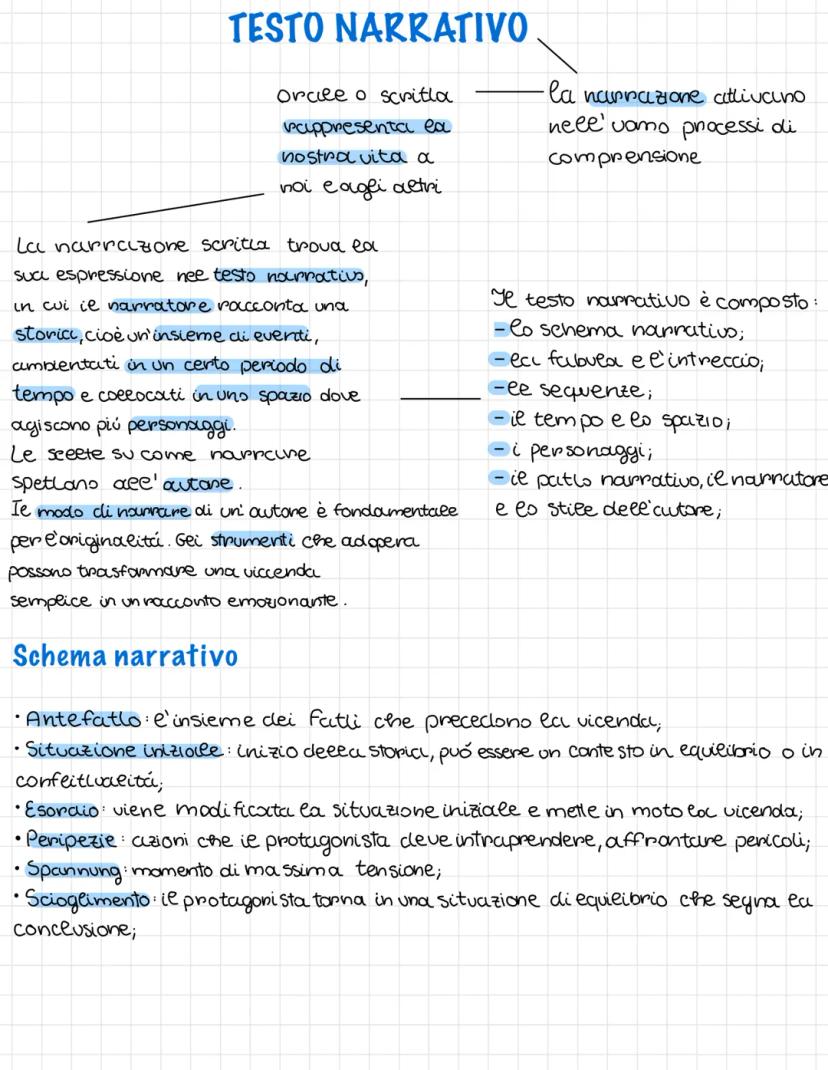 TESTO NARRATIVO
la narrazione attivano
nell'uomo processi di
comprensione
orale o scritta
rappresenta la
nostra vita a
noi e agli altri
La narrazione scritta trova la
sua espressione nel testo narrativo,
in cui il narratore racconta una
storia, cioè un'insieme di eventi,
ambientati in un certo periodo di
tempo e collocati in uno spazio dove
agiscono più personaggi.
Le scelte su come narrare
spettano all'autore.
Il modo di narrare di un'autore è fondamentale
per l'originalitá. Gli strumenti che adopera
possono trasformare una viccenda
semplice in un racconto emozionante.
Il testo narrativo è composto:
-lo schema narrativo;
-la fabula e l'intreccio;
-le sequenze;
-il tempo e lo spazio;
-i personaggi;
-il patto narrativo, il narratore
e lo stile dell'autore;
Schema narrativo
· Antefatto: l'insieme dei fatti che precedono la vicenda;
· Situazione iniziale: inizio della storia, puó essere un contesto in equilibrio o in
conflittualitá;
· Esordio: viene modificata la situazione iniziale e mette in moto la vicenda;
· Peripezie: azioni che il protagonista deve intraprendere, affrontare pericoli;
· Spannung: momento di massima tensione;
· Scioglimento: il protagonista torna in una situazione di equilibrio che segna la
conclusione;